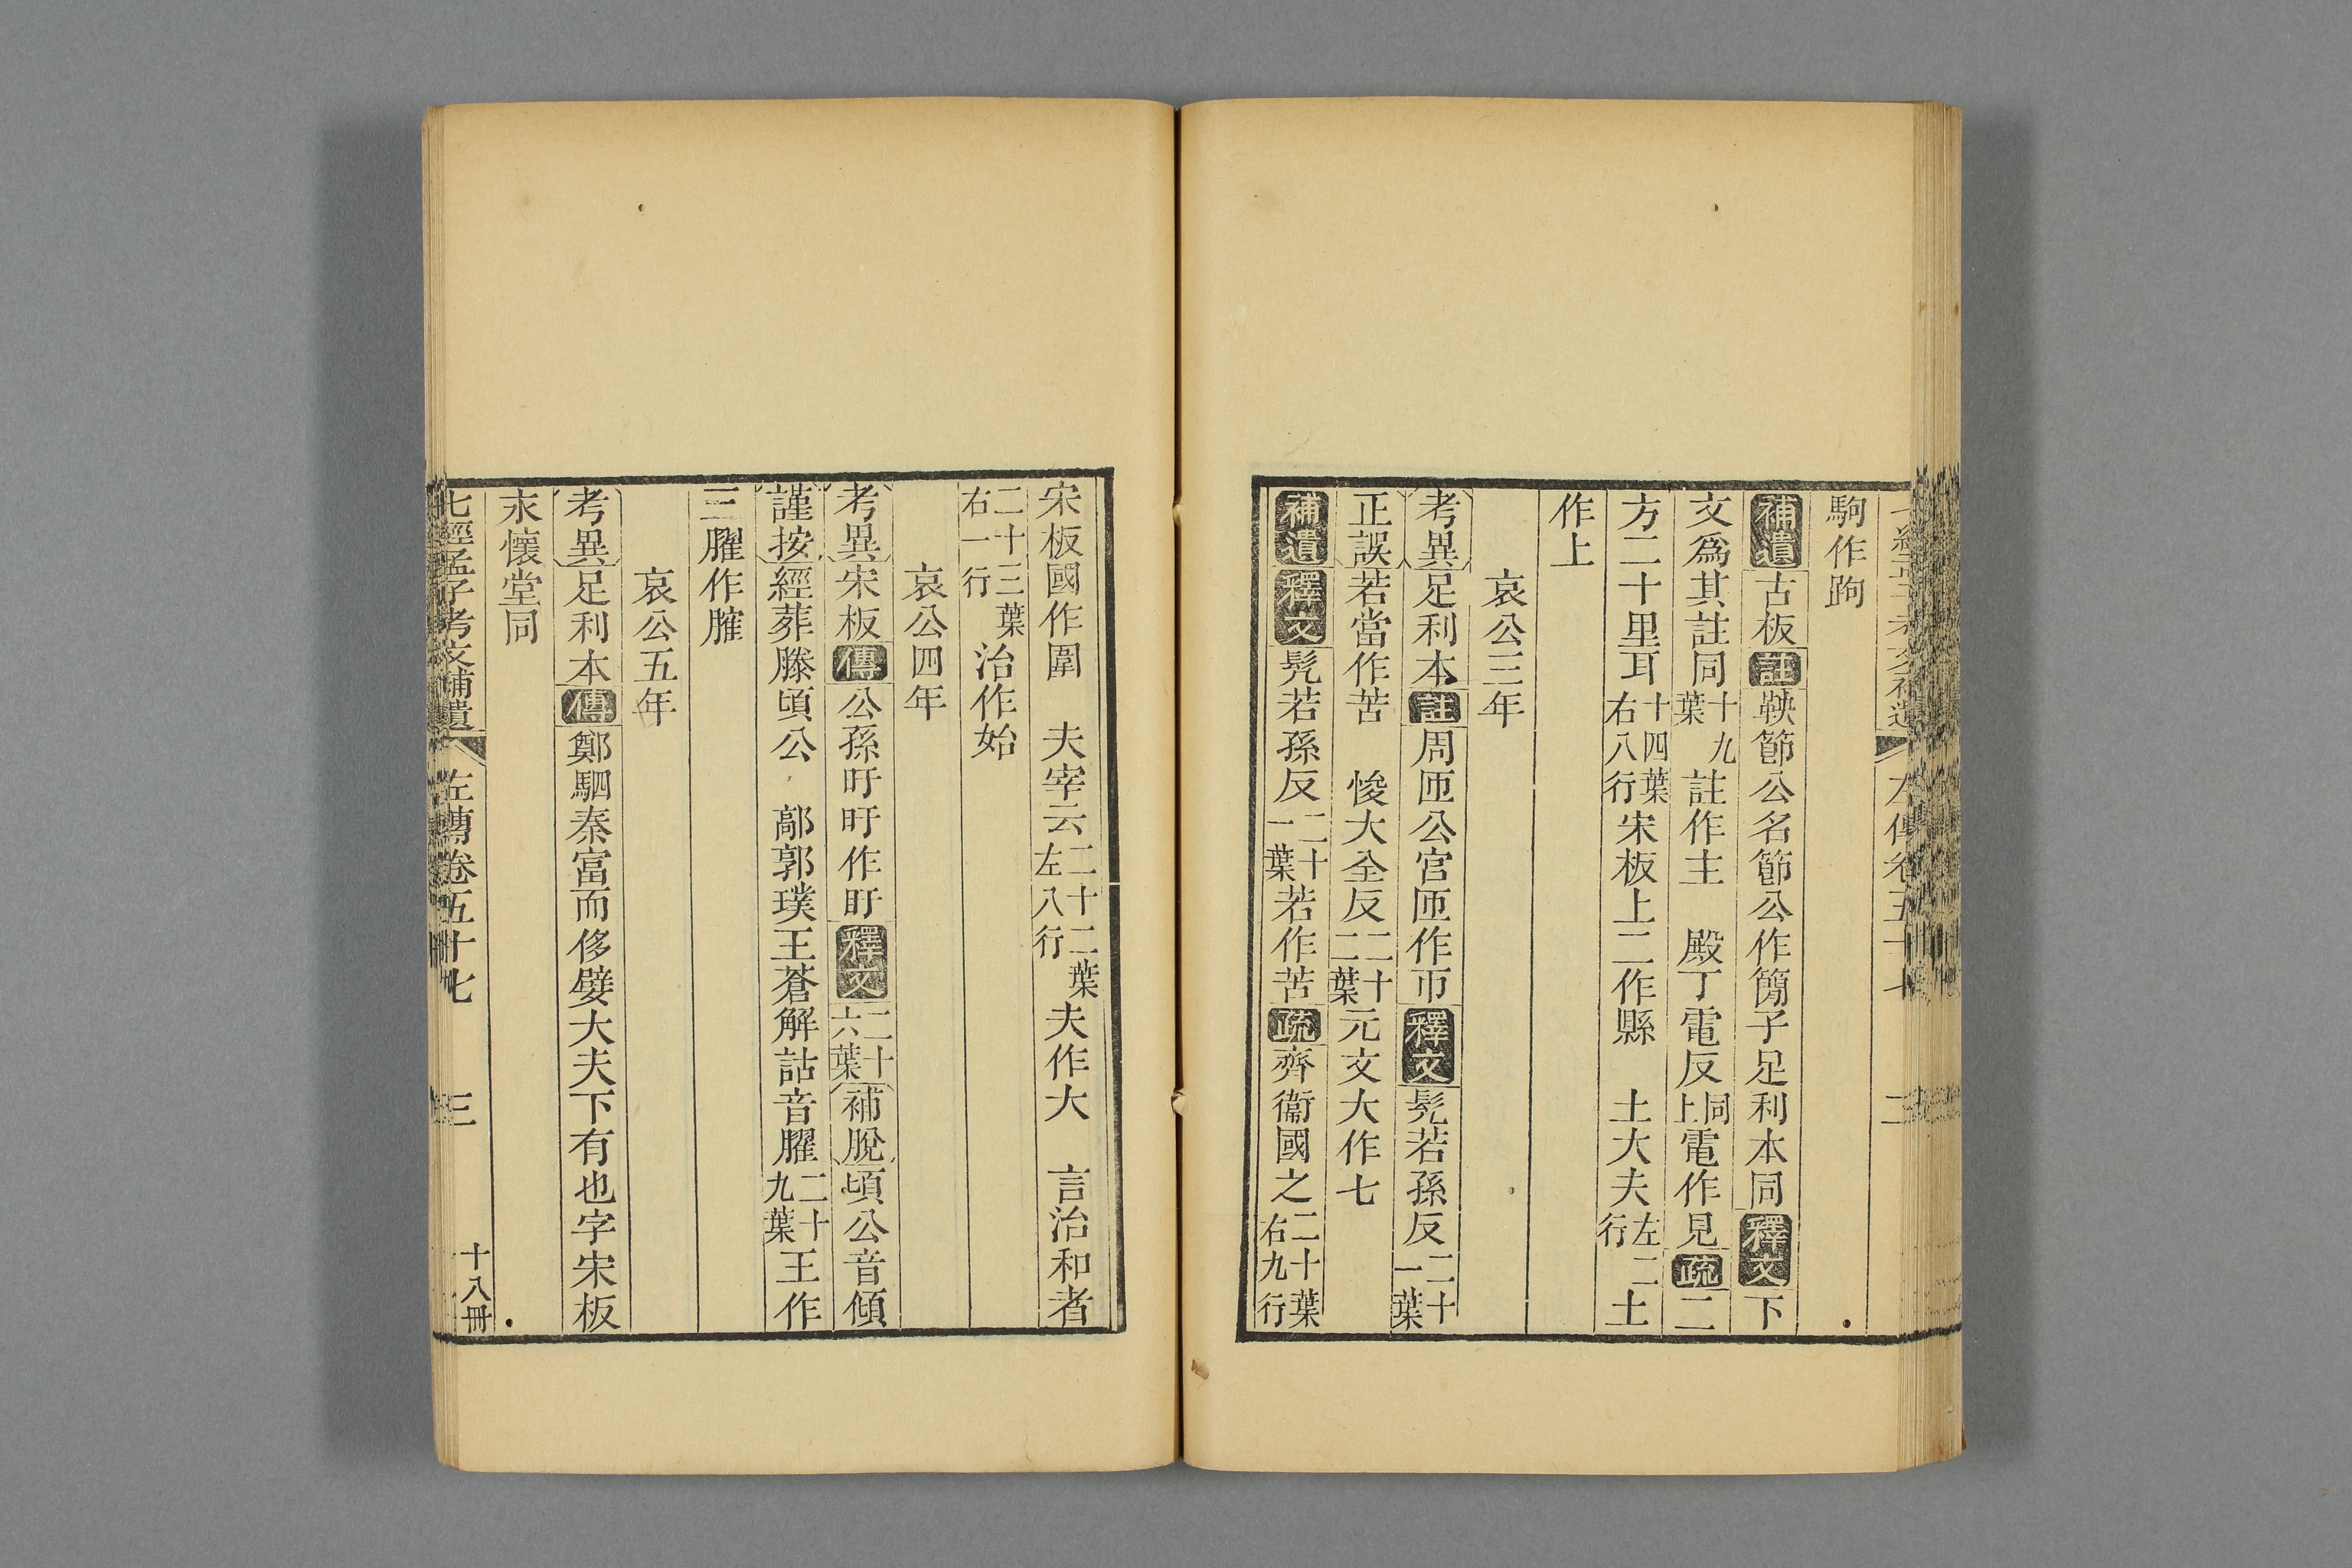 駒作跔
補遺古板註鞅節公名節公作簡子足利本同釋文下
文爲其註同十九葉註作主　殿丁電反同上電作見疏二
方二十里耳十四葉右八行宋板上二作縣　土大夫左二土行
作上
哀公三年
考異足利本註周匝公宮匝作帀釋文髡若孫反二十一葉
正誤若當作苦　悛大全反二十二葉元文大作七
補遺釋文髡若孫反二十一葉若作苦疏齊衞國之二十葉右九行
宋板國作圍　夫宰云二十二葉左八行夫作大　言治和者
二十三葉右一行治作始
哀公四年
考異宋板傳公孫盱盱作盱釋文二十六葉補脫頃公音傾
謹按經葬滕頃公　鄗郭璞王蒼解詁音臛二十九葉王作
三臛作膗
哀公五年
考異足利本傳鄭駟秦富而侈嬖大夫下有也字宋板
永懷堂同
七經孟子考文補遺　左傳卷五十七　三　十八冊